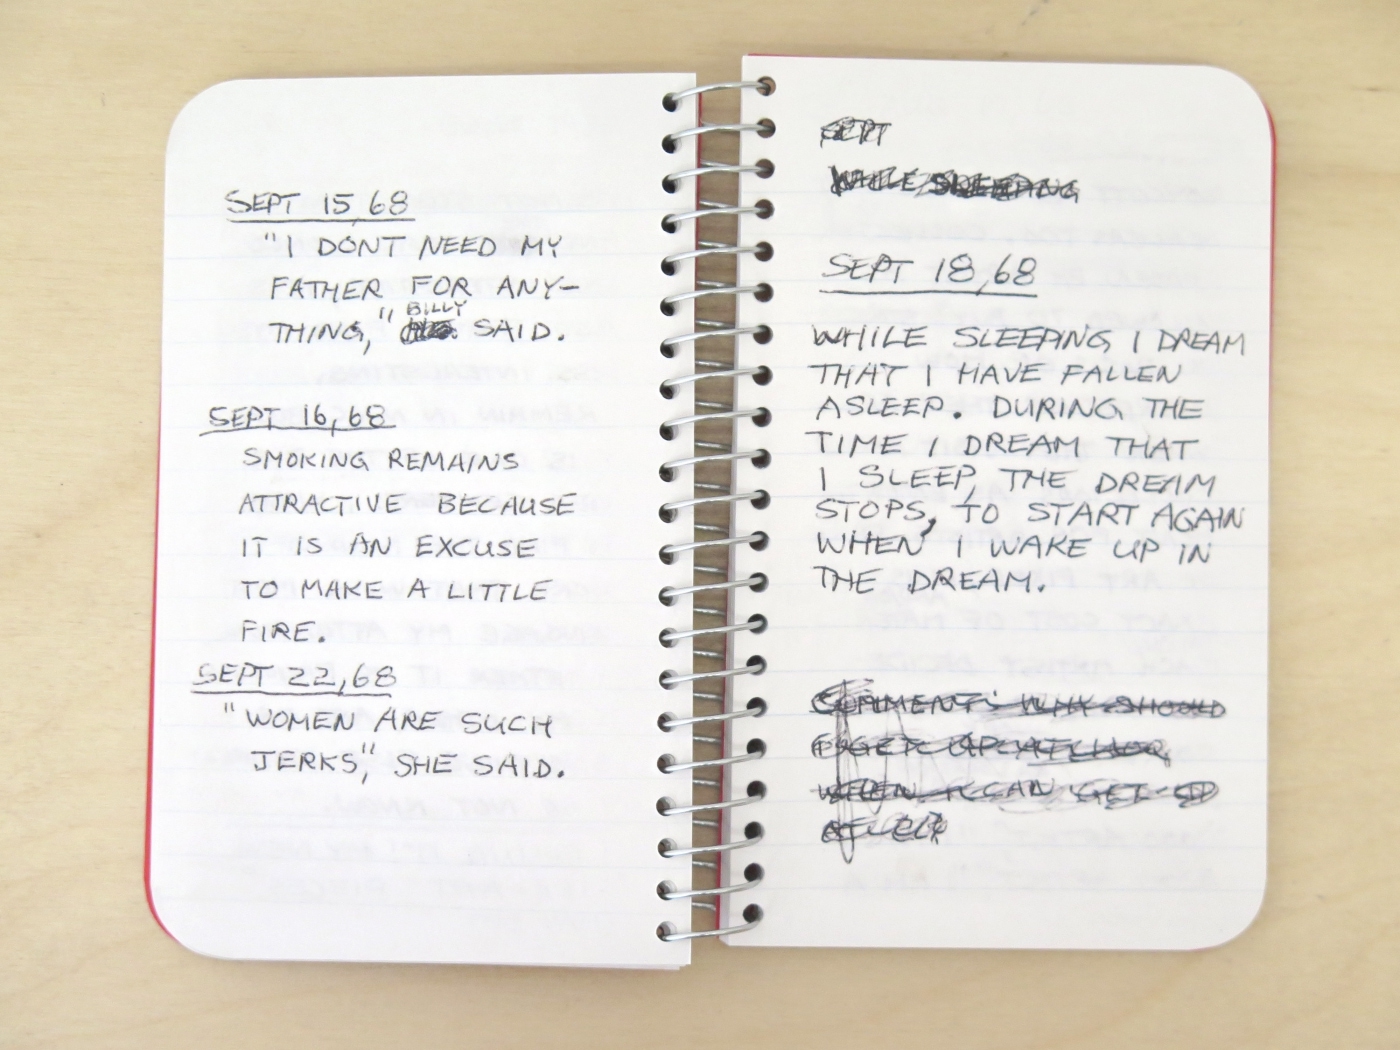 SEPT 15, 68
"I DONT NEED MY
FATHER FOR ANY-
THING," BILLY SAID.
SEPT 16, 68
SMOKING REMAINS
ATTRACTIVE BECAUSE
IT IS AN EXCUSE
TO MAKE A LITTLE
FIRE.
SEPT 22, 68
"WOMEN ARE SUCH
JERKS," SHE SAID.
SEPT
WHILE SLEEPING
SEPT 18, 68
WHILE SLEEPING I DREAM
THAT I HAVE FALLEN
ASLEEP. DURING THE
TIME I DREAM THAT
I SLEEP, THE DREAM
STOPS, TO START AGAIN
WHEN I WAKE UP IN
THE DREAM.
COMMENTS: WHY SHOULD
WHEN I CAN GET